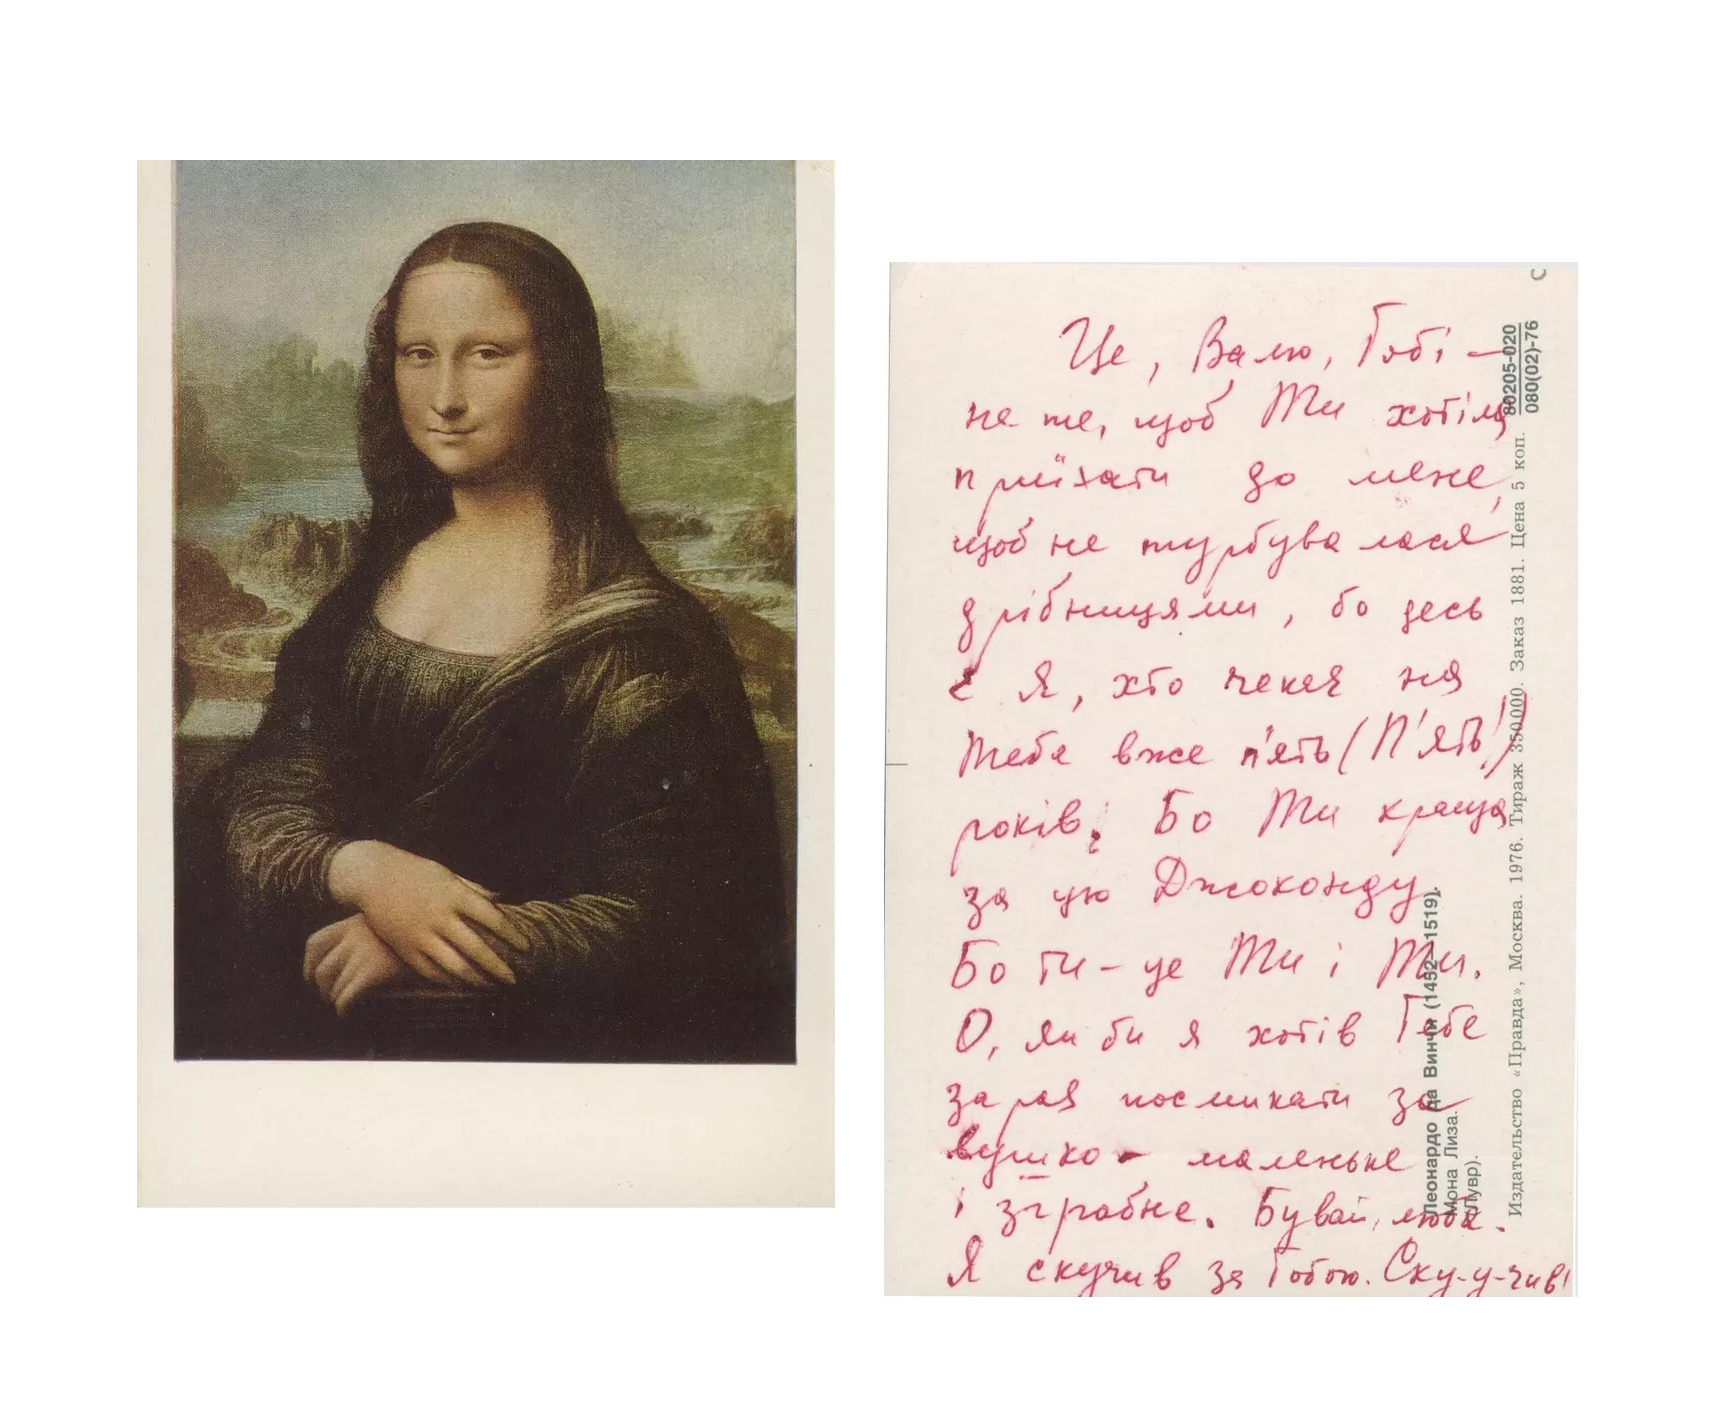 Це, Валю, Тобі —
на те, щоб Ти хотіла
приїхати до мене,
щоб не турбувалася
дрібницями, бо десь
є Я, хто чекає на
Тебе вже п'ять (П'ять!)
років. Бо Ти краща
за цю Джоконду.
Бо ти – це Ти і Ти.
О, як би я хотів Тебе
зараз посмикати за
вушко – маленьке
і зграбне. Бувай, люба.
Я скучив за Тобою. Ску-у-чив!
Леонардо да Винчи (1452—1519).
Мона Лиза.
(Лувр).
Издательство «Правда», Москва. 1976. Тираж 350000. Заказ 1881. Цена 5 коп.
80205-020
080(02)-76
С